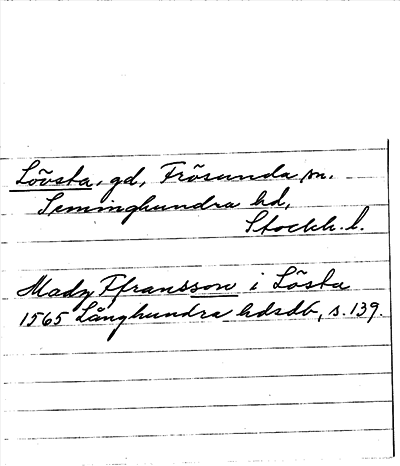 Lövsta, gd, Frösunda sn.
Seminghundra hd,
Stockh. l.
Madz Ffransson i Lösta
1565 Långhundra hdsdb, s. 139.